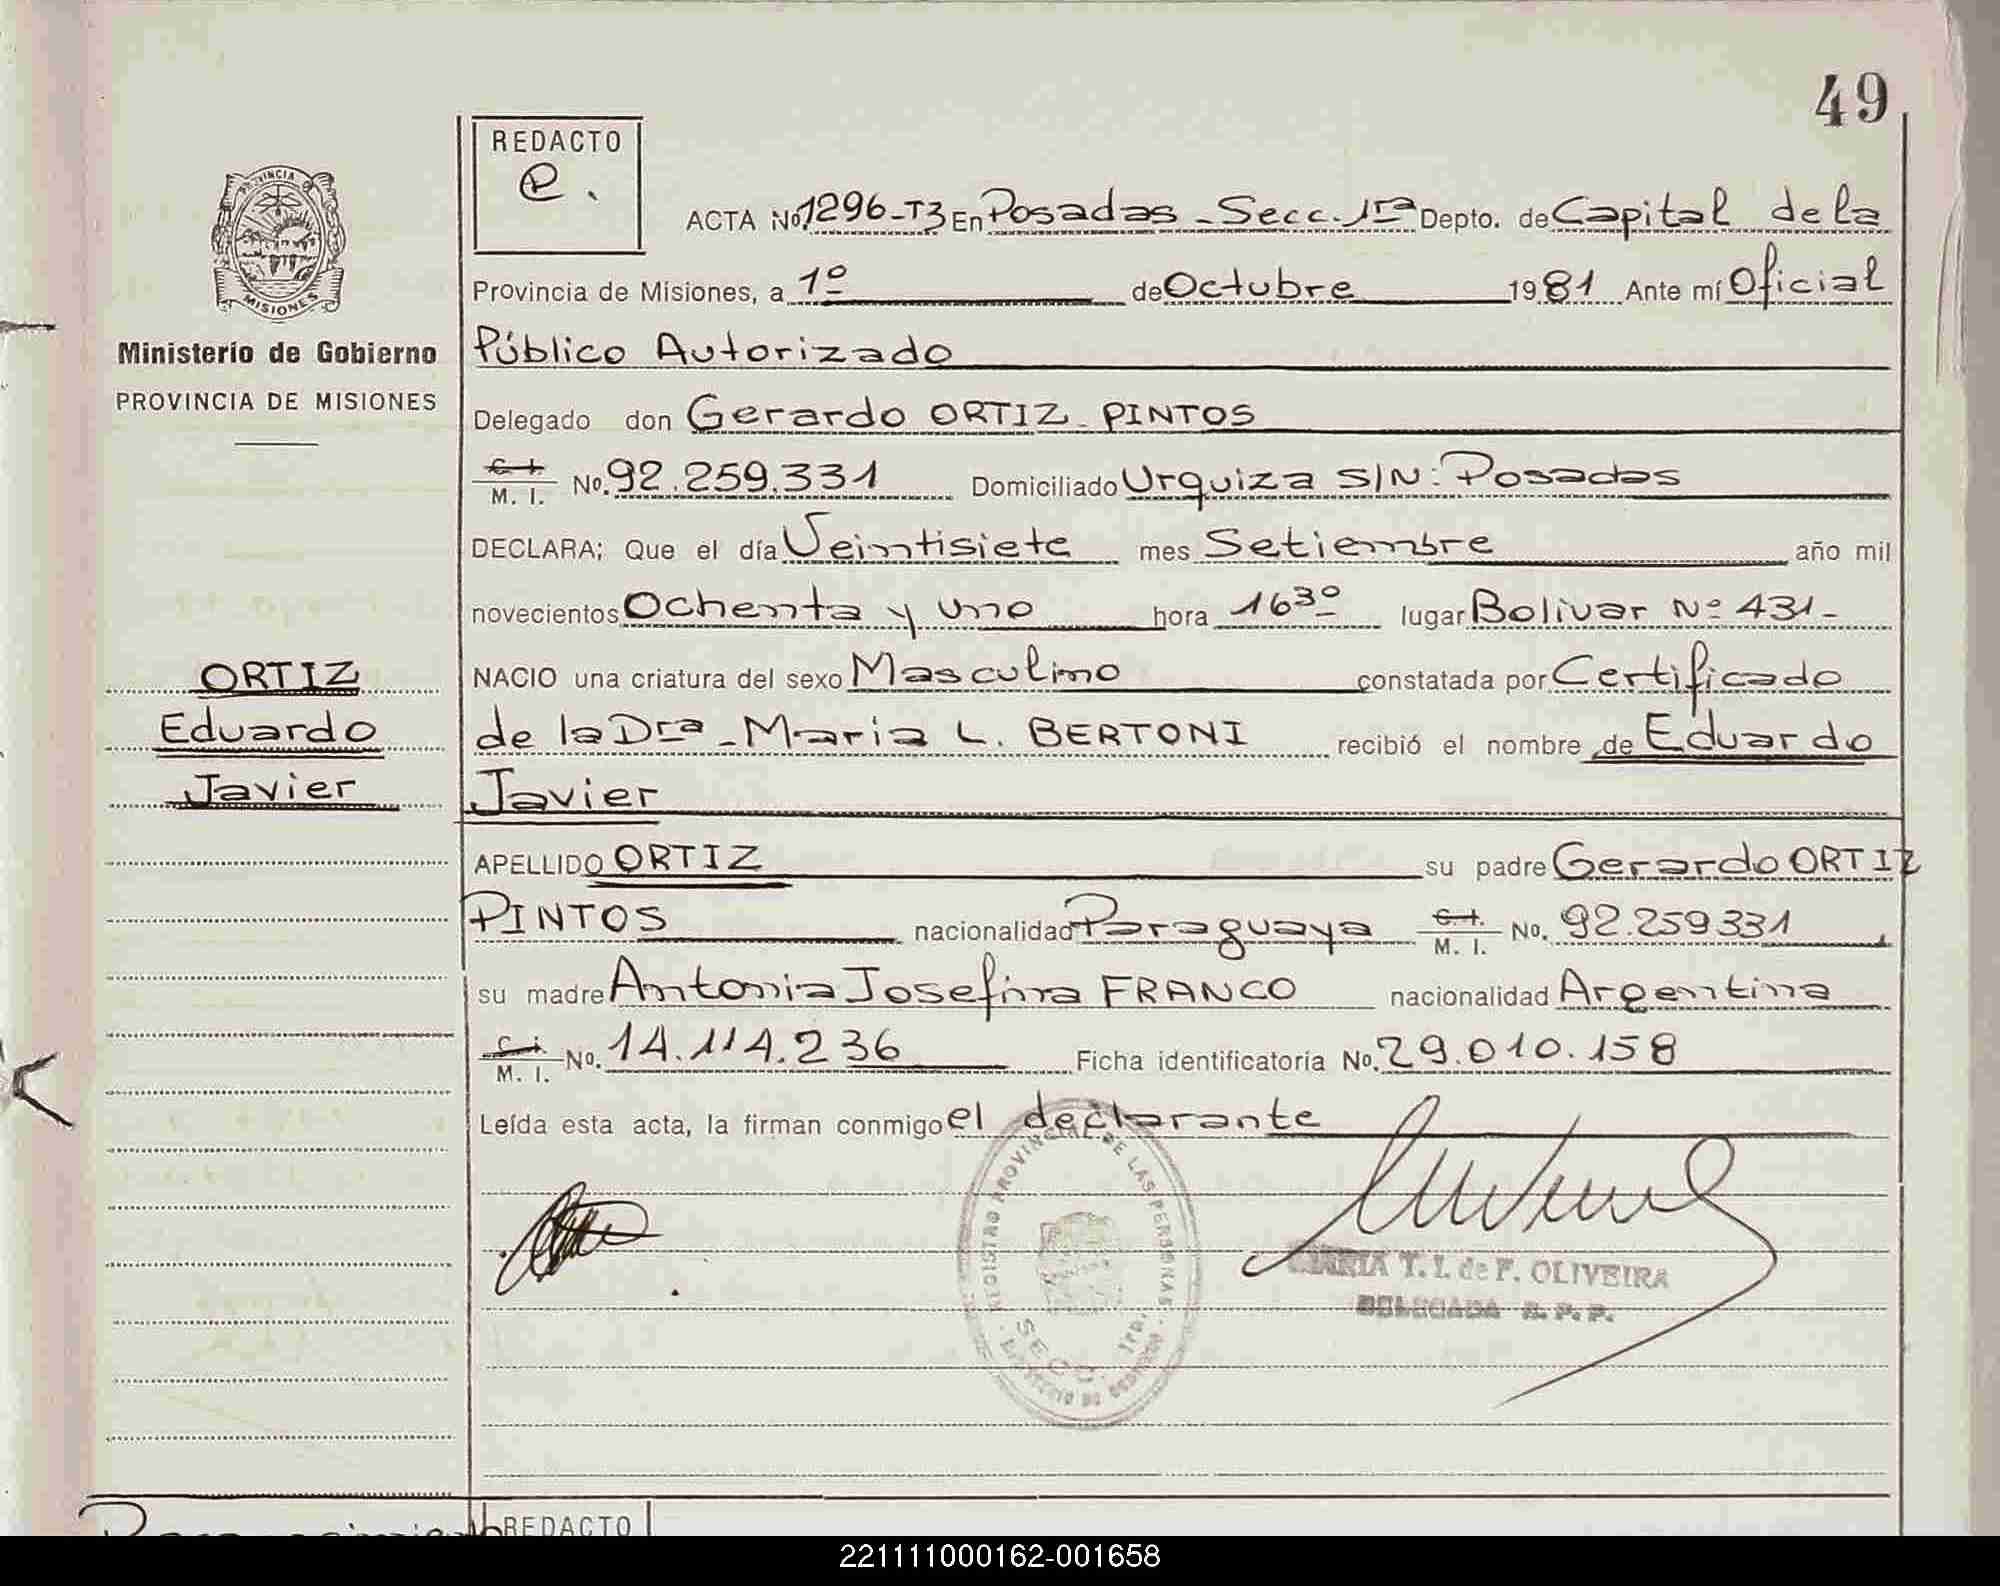 49
REDACTO
e.
PROVINCIA
MISIONES
Ministerio de Gobierno
PROVINCIA DE MISIONES
ORTIZ
Eduardo
Javier
ACTA No. 1296-T3 En Posadas - Secc. 1ra Depto. de Capital de la
Provincia de Misiones, a 1º de Octubre 1981 Ante mí Oficial
Público Autorizado
Delegado don Gerardo ORTIZ PINTOS
C. I. M. I. No. 92.259.331 Domiciliado Urquiza S/N: Posadas
DECLARA; Que el día Veintisiete mes Setiembre año mil
novecientos Ochenta y uno hora 16³⁰ lugar Bolivar Nº 431-
NACIO una criatura del sexo Masculino constatada por Certificado
de la Dra - Maria L. BERTONI recibió el nombre de Eduardo
Javier
APELLIDO ORTIZ su padre Gerardo ORTIZ
PINTOS nacionalidad Paraguaya C. I. M. I. No. 92.259331
su madre Antonia Josefina FRANCO nacionalidad Argentina
C. I. M. I. No. 14.114.236 Ficha identificatoria No. 29.010.158
Leída esta acta, la firman conmigo el declarante
REGISTRO PROVINCIAL DE LAS PERSONAS
SECC. 1ra.
MINISTERIO DE GOBIERNO
MARIA T. I. de F. OLIVEIRA
DELEGADA R. P. P.
REDACTO
221111000162-001658